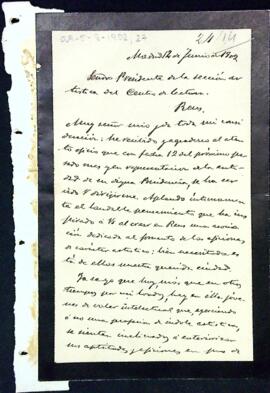 24/14
Madrid 14 de Junio de 1902
Señor Presidente de la sección ar
tistica del Centro de Lectura.
Reus.
Muy señor mio y de toda mi consi
deracion: he recibido y agradezco el aten
to oficio que con fecha 12 del próximo pasado
mes y en representacion de la enti
dad de su digna Presidencia, se ha ser
vido V dirigirme. Aplaudo íntimamen
te el laudable pensamiento que ha ins
pirado á Vs al crear en Reus una sección
dedicada al fomento de las aficiones
de carácter artístico; bien necesitada es
tá de ellos nuestra querida ciudad.
Ya se que hoy, mas que en otros
tiempos por mi vividos, hay en ella jóve
nes de valer intelectual que, ejerciendo
ó no una profesion de indole artistica,
se sienten inclinados á exteriorizar
sus aptitudes y aficiones en pro de